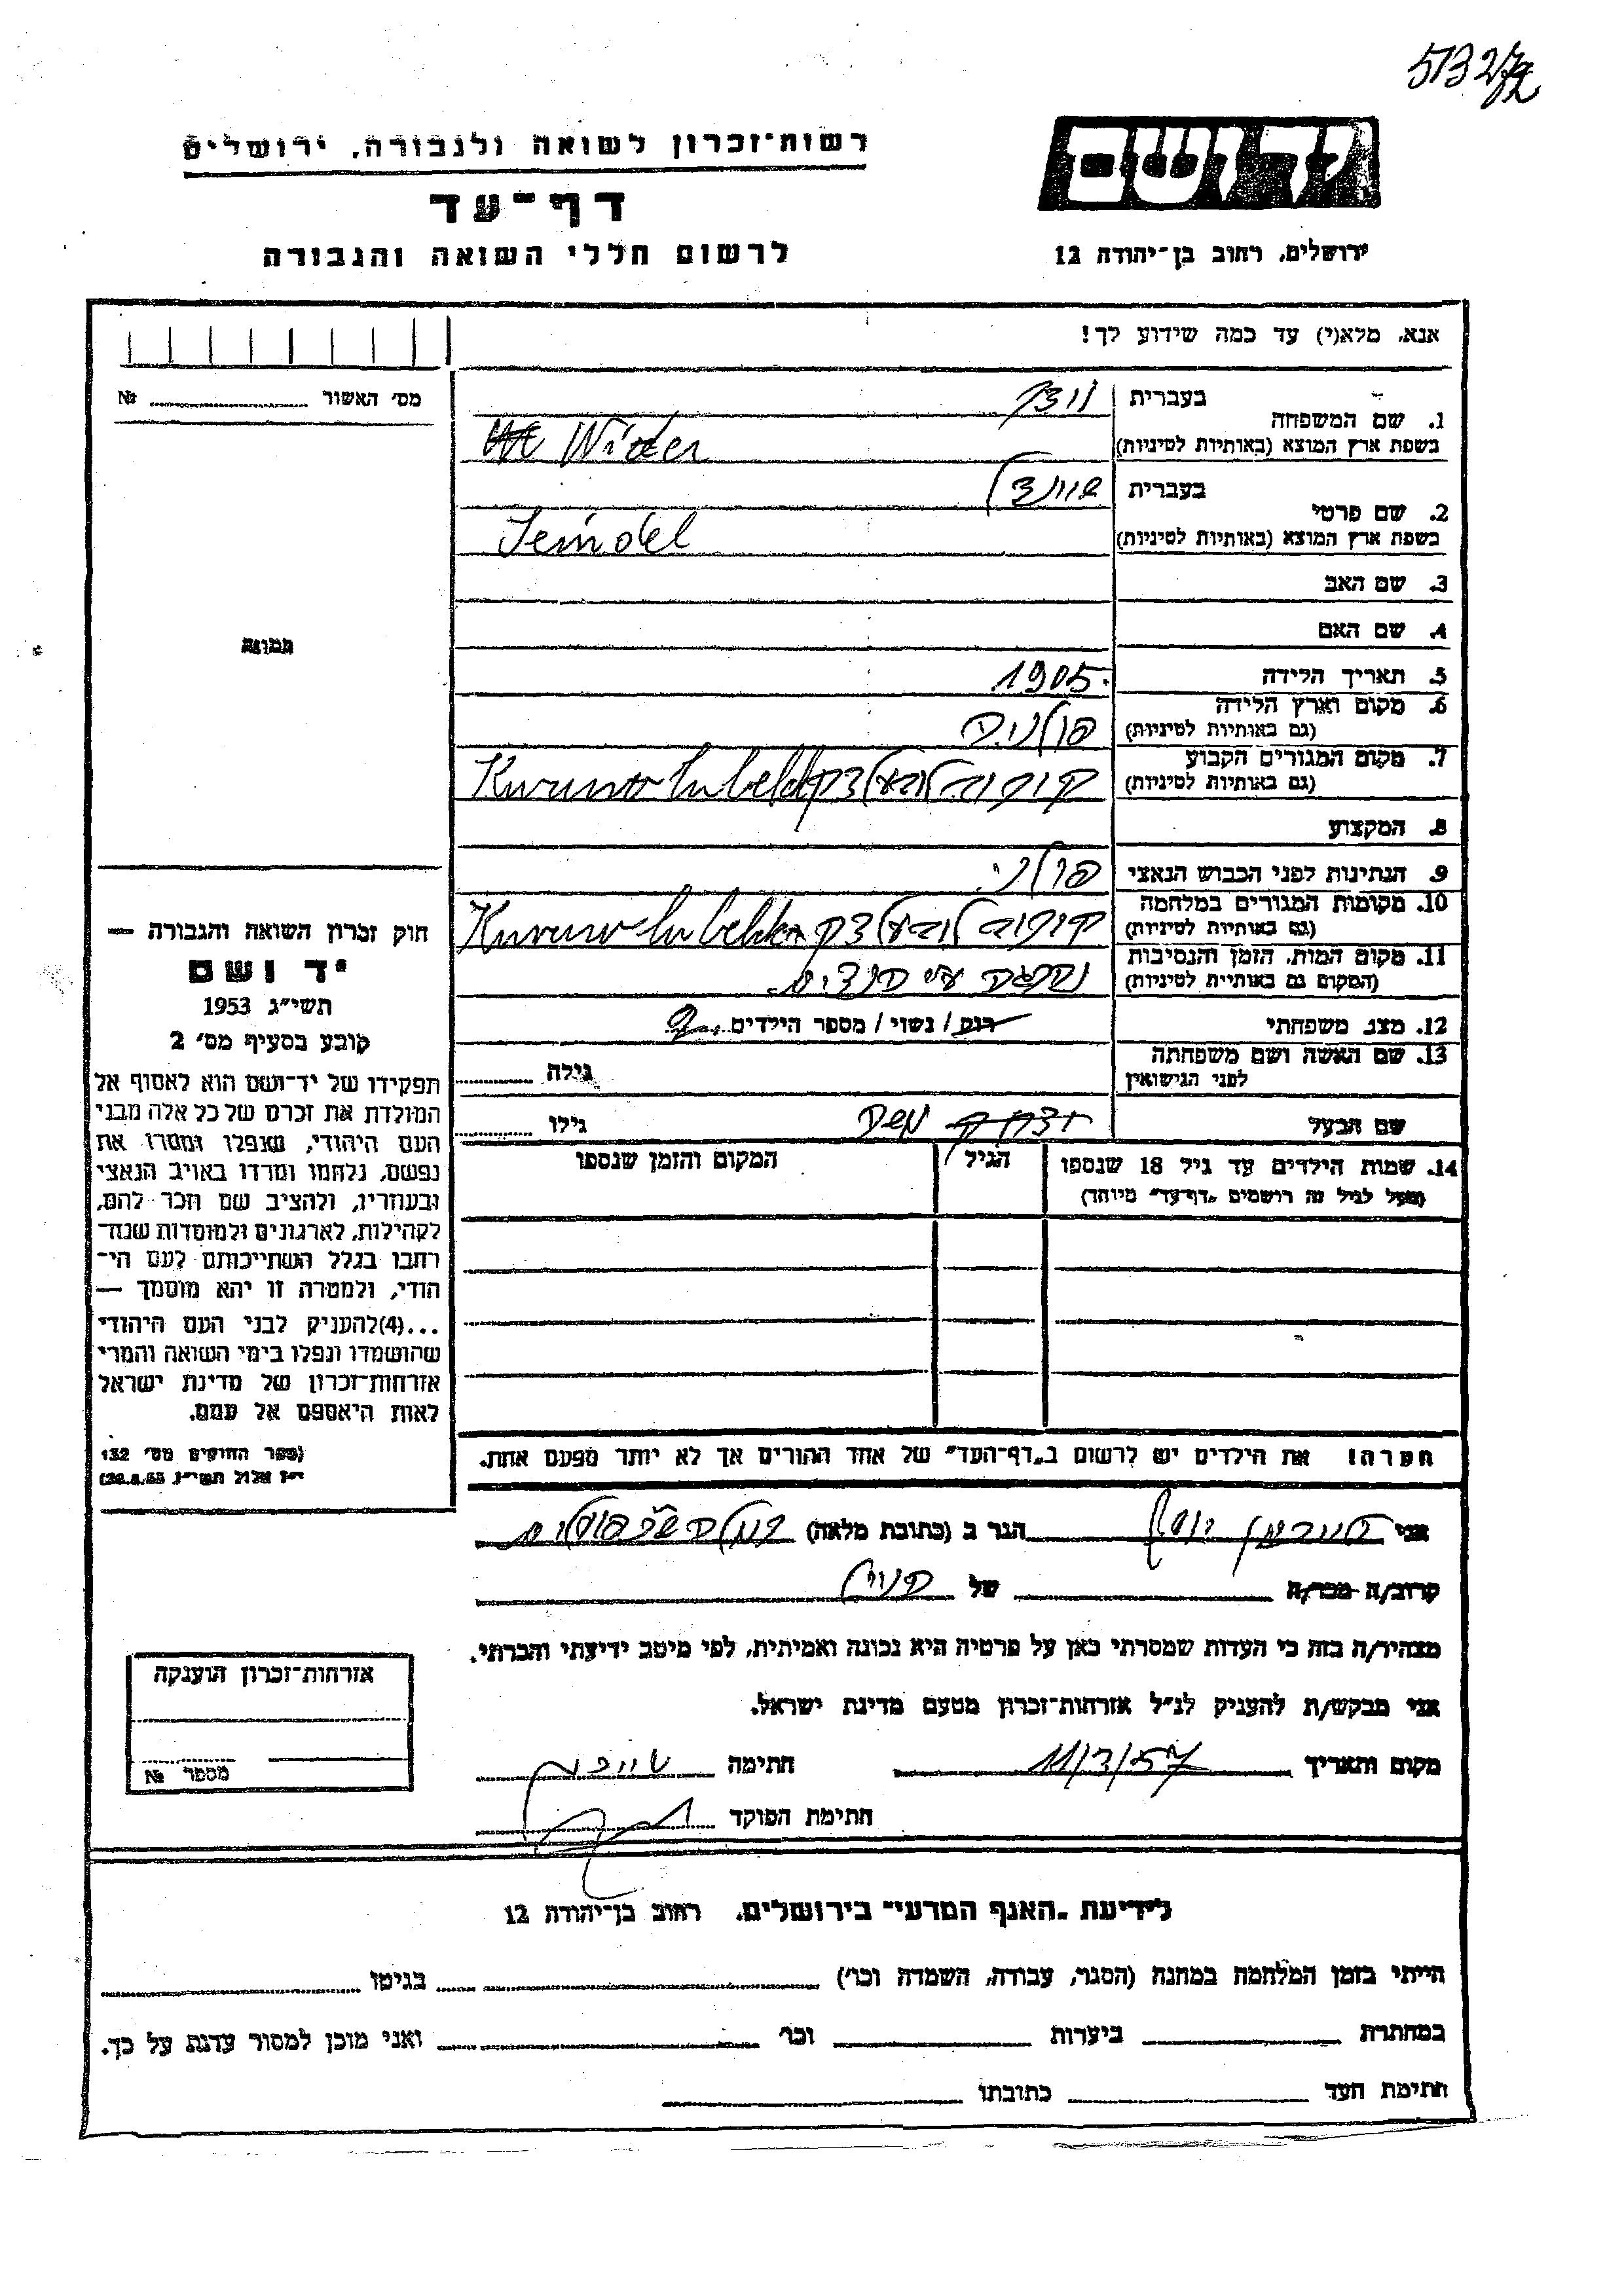 רשות־זכרון לשואה ולגבורה, ירושלים
דף־עד
לרשום חללי השואה והגבורה
יד ושם
ירושלים, רחוב בן־יהודה 12
אנא, מלא(י) עד כמה שידוע לך!
מס׳ האשור №
1. שם המשפחה
בעברית
בשפת ארץ המוצא (באותיות לטיניות) Wider
2. שם פרטי
בעברית
בשפת ארץ המוצא (באותיות לטיניות)
3. שם האב
4. שם האם
5. תאריך הלידה 1905
6. מקום וארץ הלידה
(גם באותיות לטיניות) פולניה
7. מקום המגורים הקבוע
(גם באותיות לטיניות)
8. המקצוע
9. הנתינות לפני הכבוש הנאצי פולני
10. מקומות המגורים במלחמה
(גם באותיות לטיניות)
11. מקום המות, הזמן והנסיבות
(המקום גם באותיות לטיניות)
12. מצב משפחתי רווק / נשוי / מספר הילדים 2
13. שם האשה ושם משפחתה
לפני הנישואין
גילה
שם הבעל משה
גילו
14. שמות הילדים עד גיל 18 שנספו
(מעל לגיל זה רושמים „דף־עד״ מיוחד)
הגיל
המקום והזמן שנספו
הערה: את הילדים יש לרשום ב„דף־העד״ של אחד ההורים אך לא יותר מפעם אחת.
תמונה
חוק זכרון השואה והגבורה —
יד ושם
תשי״ג 1953
קובע בסעיף מס׳ 2
תפקידו של יד־ושם הוא לאסוף אל
המולדת את זכרם של כל אלה מבני
העם היהודי, שנפלו ומסרו את
נפשם, נלחמו ומרדו באויב הנאצי
ובעוזריו, ולהציב שם וזכר להם,
לקהילות, לארגונים ולמוסדות שנח־
רבו בגלל השתייכותם לעם הי־
הודי, ולמטרה זו יהא מוסמך —
...(4) להעניק לבני העם היהודי
שהושמדו ונפלו בימי השואה והמרי
אזרחות־זכרון של מדינת ישראל
לאות היאספם אל עמם.
(ספר החוקים מס׳ 132
י״ז אלול תשי״ג, 28.8.53)
אני
הגר ב (כתובת מלאה)
קרוב/ה מכר/ה של
מצהיר/ה בזה כי העדות שמסרתי כאן על פרטיה היא נכונה ואמיתית, לפי מיטב ידיעתי והכרתי.
אני מבקש/ת להעניק לנ״ל אזרחות־זכרון מטעם מדינת ישראל.
מקום ותאריך 11/3/57 חתימה
חתימת הפוקד
אזרחות־זכרון הוענקה
מספר №
לידיעת „האגף המדעי״ בירושלים, רחוב בן־יהודה 12
הייתי בזמן המלחמה במחנה (הסגר, עבודה, השמדה וכו׳) בגיטו
במחתרת ביערות וכו׳ ואני מוכן למסור עדות על כך.
חתימת העד כתובתו